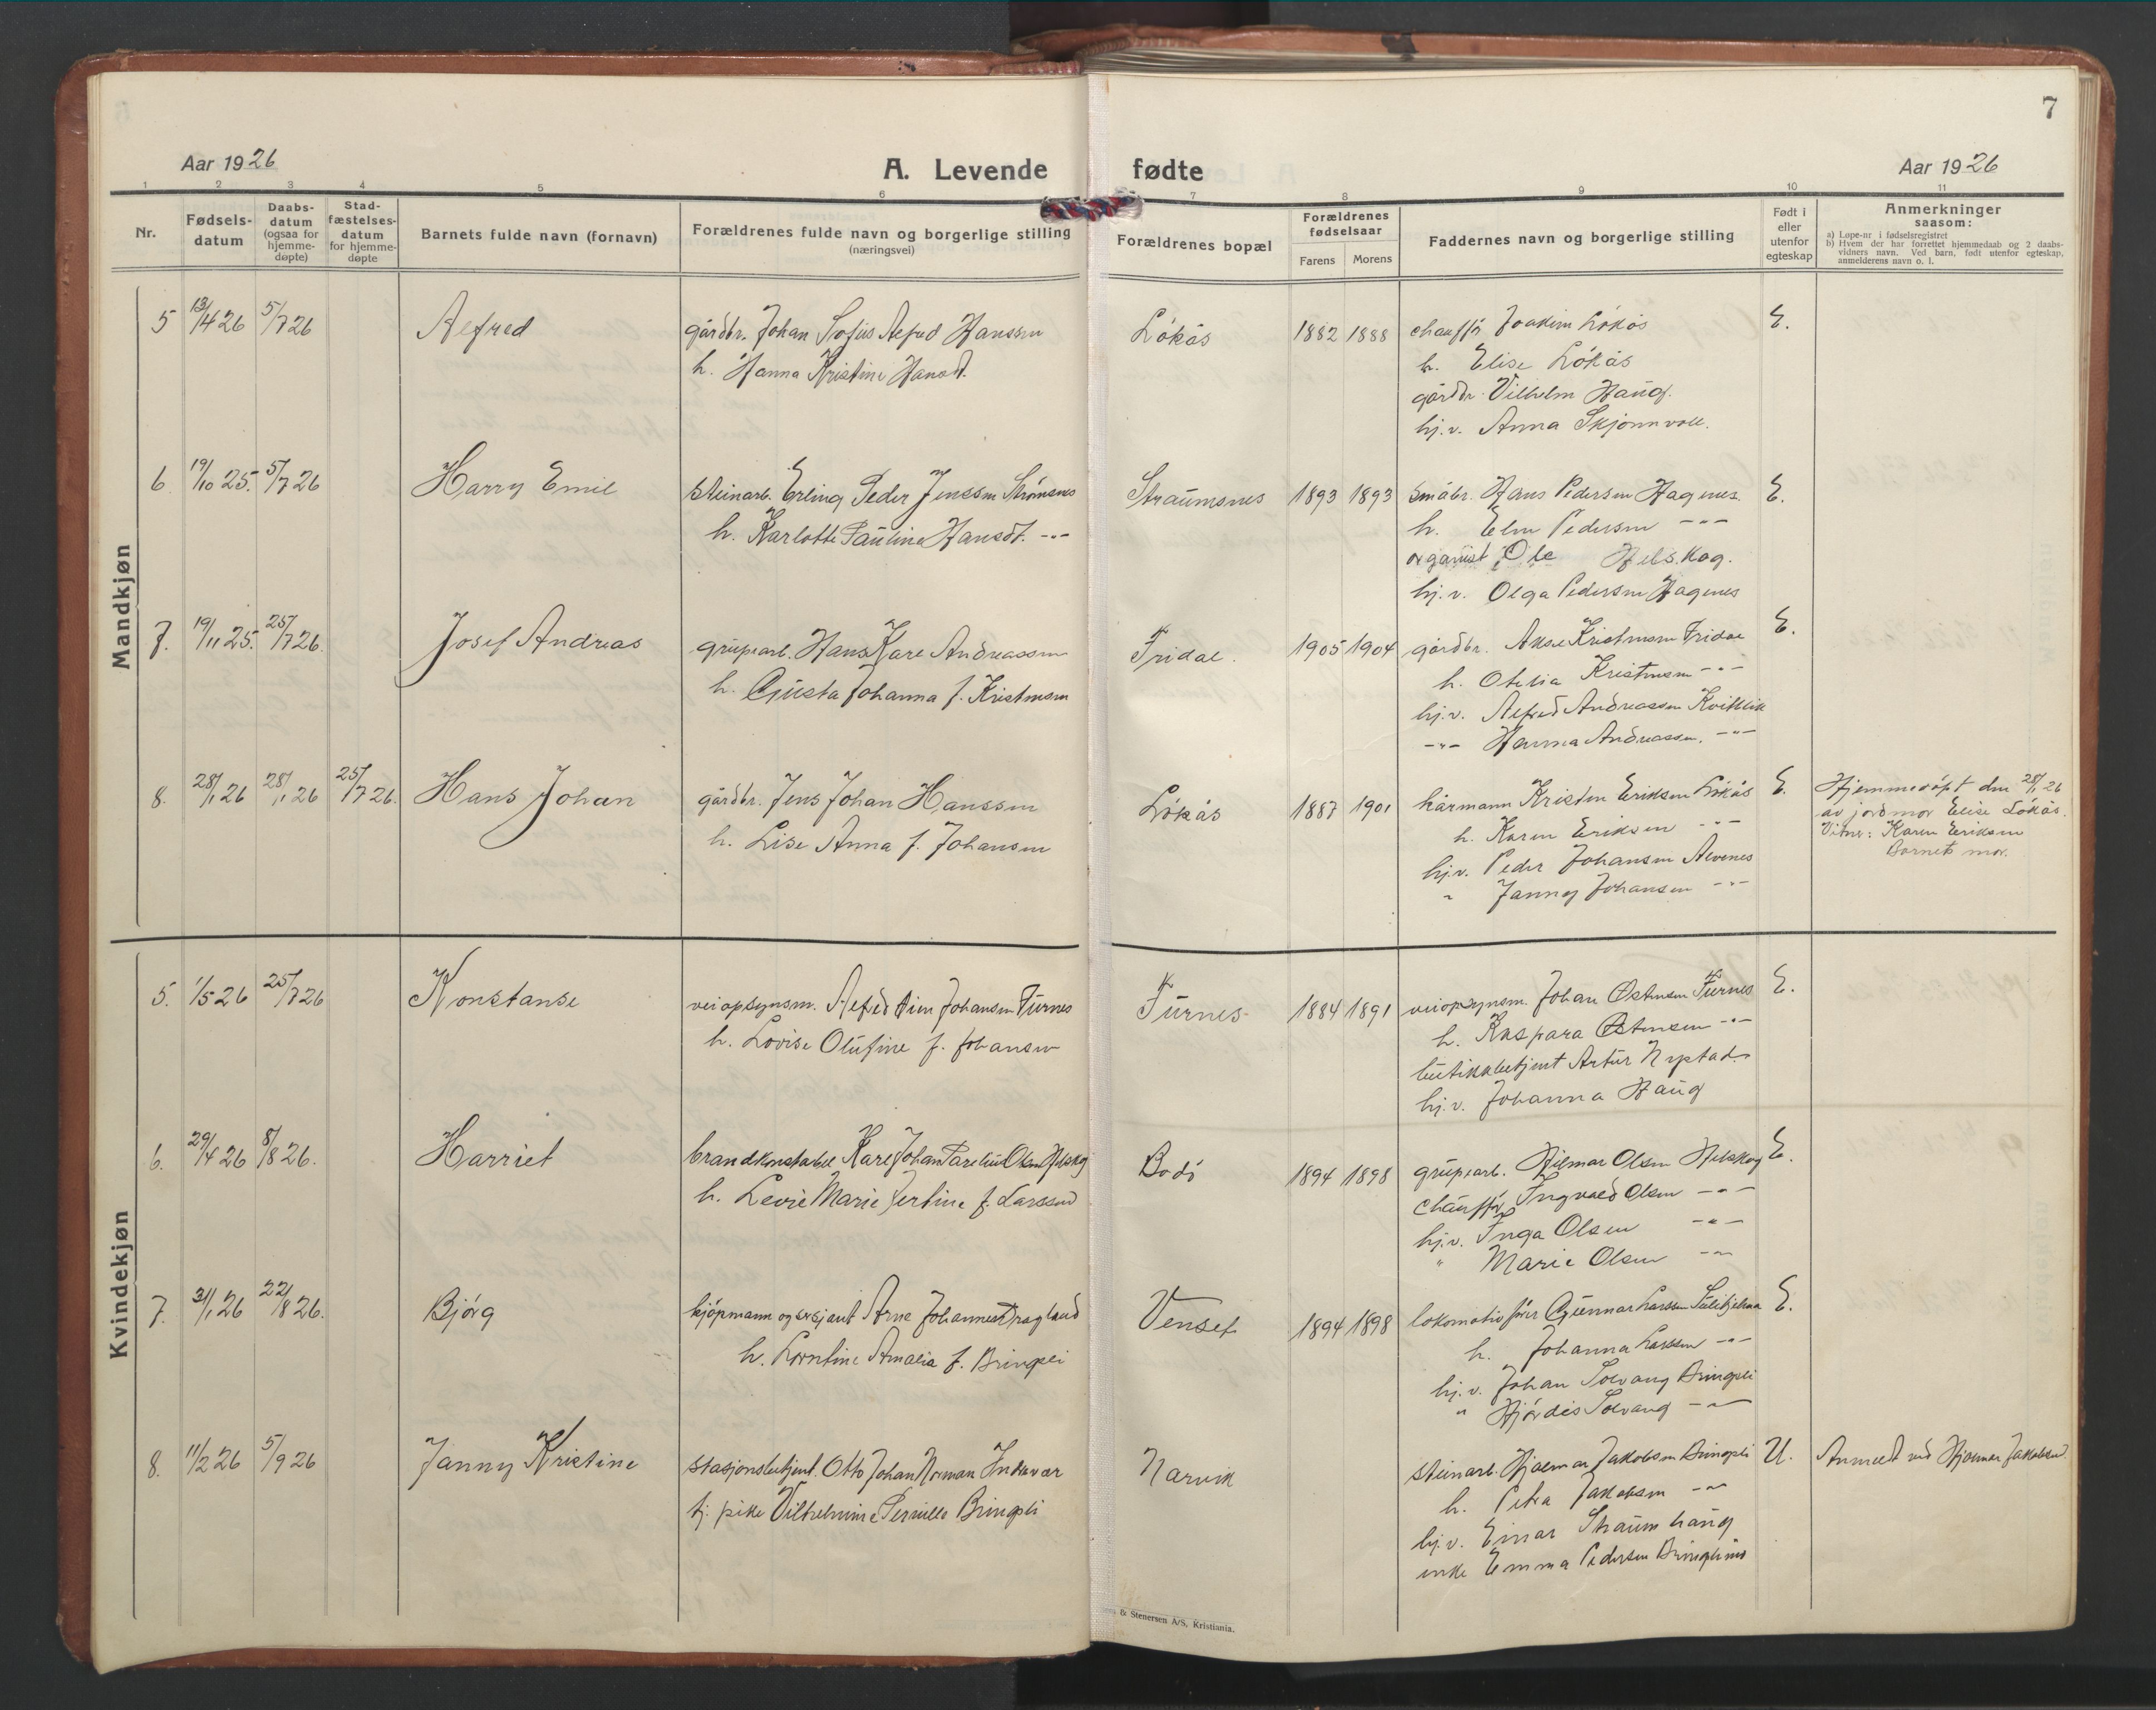 7
Aar 1926
A. Levende fødte
Aar 1926
1 2 3 4 5 6 7 8 9 10 11
Nr.
Fødsels-
datum
Daabs-
datum
(ogsaa for
hjemme-
døpte)
Stad-
fæstelses-
datum
for hjemme-
døpte
Barnets fulde navn (fornavn)
Forældrenes fulde navn og borgerlige stilling
(næringsvei)
Forældrenes bopæl
Forældrenes
fødselsaar
Farens Morens
Faddernes navn og borgerlige stilling
Født i
eller
utenfor
egteskap
Anmerkninger
saasom:
a) Løpe-nr i fødselsregistret
b) Hvem der har forrettet hjemmedaab og 2 daabs-
vidners navn. Ved barn, født utenfor egteskap,
anmelderens navn o. l.
Mandkjøn
5 13/4 26 5/7 26 Alfred
gårdbr. Johan Sofus Alfred Hanssen
h. Hanna Kristine Hansdt.
Lökås 1882 1888
chaufför Joakim Lökås
h. Elise Lökås
gårdbr. Vilhelm Haug.
hj.v. Anna Skjønnvoll.
E.
6 19/10 25. 5/7 26 Harry Emil
steinarb. Erling Peder Jenssen Strömsnes
h. Karlotte Pauline Hansdt. -"-
Straumsnes 1893 1893
småbr. Hans Pedersen Hagenes
h. Elen Pedersen -"-
organist Ole Helskog.
hj.v. Olga Pedersen Hagenes
E.
7. 19/11 25. 25/7 26. Josef Andreas
grupearb. Hans Kare Andreassen
h. Gusta Johanna f. Kristensen
Fridal. 1905 1904
gårdbr. Aksel Kristensen Fridal
h. Otelia Kristensen -"-
hj.v. Alfred Andreassen Kvitblik
-"- Hanna Andreassen. -"-
E.
8. 28/1 26 28/1 26 25/7 26. Hans Johan
gårdbr. Jens Johan Hanssen
h. Lise Anna f. Johansen
Lökås 1887 1901
kårmann Kristen Eriksen Lökås
h. Karen Eriksen -"-
hj.v. Peder Johansen Alvenes
" Janny Johansen -"-
E.
Hjemmedöpt den 28/1 26
av jordmor Elise Lökås.
Vitner: Karen Eriksen
Barnets mor.
Kvindekjøn
5. 1/5 26 25/7 26 Konstanse
veiopsynsm. Alfred Johansen Furnes
h. Lovise Olufine f. Johansen
Furnes 1884 1891
veiopsynsm. Johan Östensen Furnes
h. Kaspara Östensen -"-
butikkbetjent Artur Nystad
hj.v. Johanna Haug
E.
6. 29/4 26 8/8 26. Harriet
brandkonstabel Karl Johan Parelius Olsen Helskog
h. Levie Marie Jertine f. Larssen
Bodö 1894 1898
grupearb. Hilmar Olsen Helskog
chauffør Ingvald Olsen -"-
hj.v. Inga Olsen -"-
" Marie Olsen -"-
E.
7. 31/1 26 22/8 26. Bjørg
kjöpmann og sersjant Arne Johannes Dragland
h. Lorntine Amalia f. Bringsli
Venset 1894 1898
lokomotivförer Gunnar Larssen Sulitjelma
h. Johanna Larssen -"-
hj.v. Johan Solvang Bringsli
" Hjördis Solvang -"-
E.
8. 11/2 26 5/9 26 Janny Kristine
stasjonsbetjent. Otto Johan Norman Indrevær
tj. pike Vilhelmine Pernille Bringsli
Narvik
steinarb. Hjalmar Jakobsen Bringsli
h. Petra Jakobsen -"-
hj.v. Einar Straumhaug
enke Emma Pedersen
U.
Anmeldt ved Hjalmar Jakobsen.
& Stenersen A/S, Kristiania.